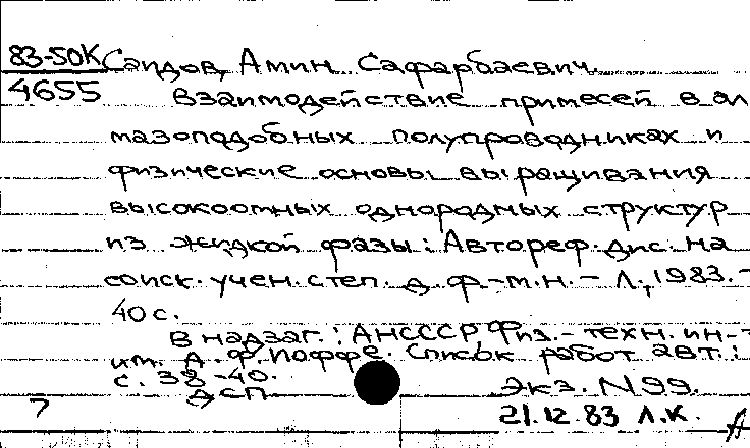 83-50К Саидов, Амин Сафарбаевич.
4655 Взаимодействие примесей в ал
мазоподобных полупроводниках и
физические основы выращивания
высокоомных однородных структур
из жидкой фазы: Автореф. дис. на
соиск. учен. степ. д. ф.-м.н. - Л., 1983. -
40 с.
В надзаг.: АНСССР, Физ.-техн. ин.-т
им. А.Ф. Иоффе. Список работ авт.:
с. 38-40.
ДСП
Экз. N 99.
7
21.12.83 Л.К.